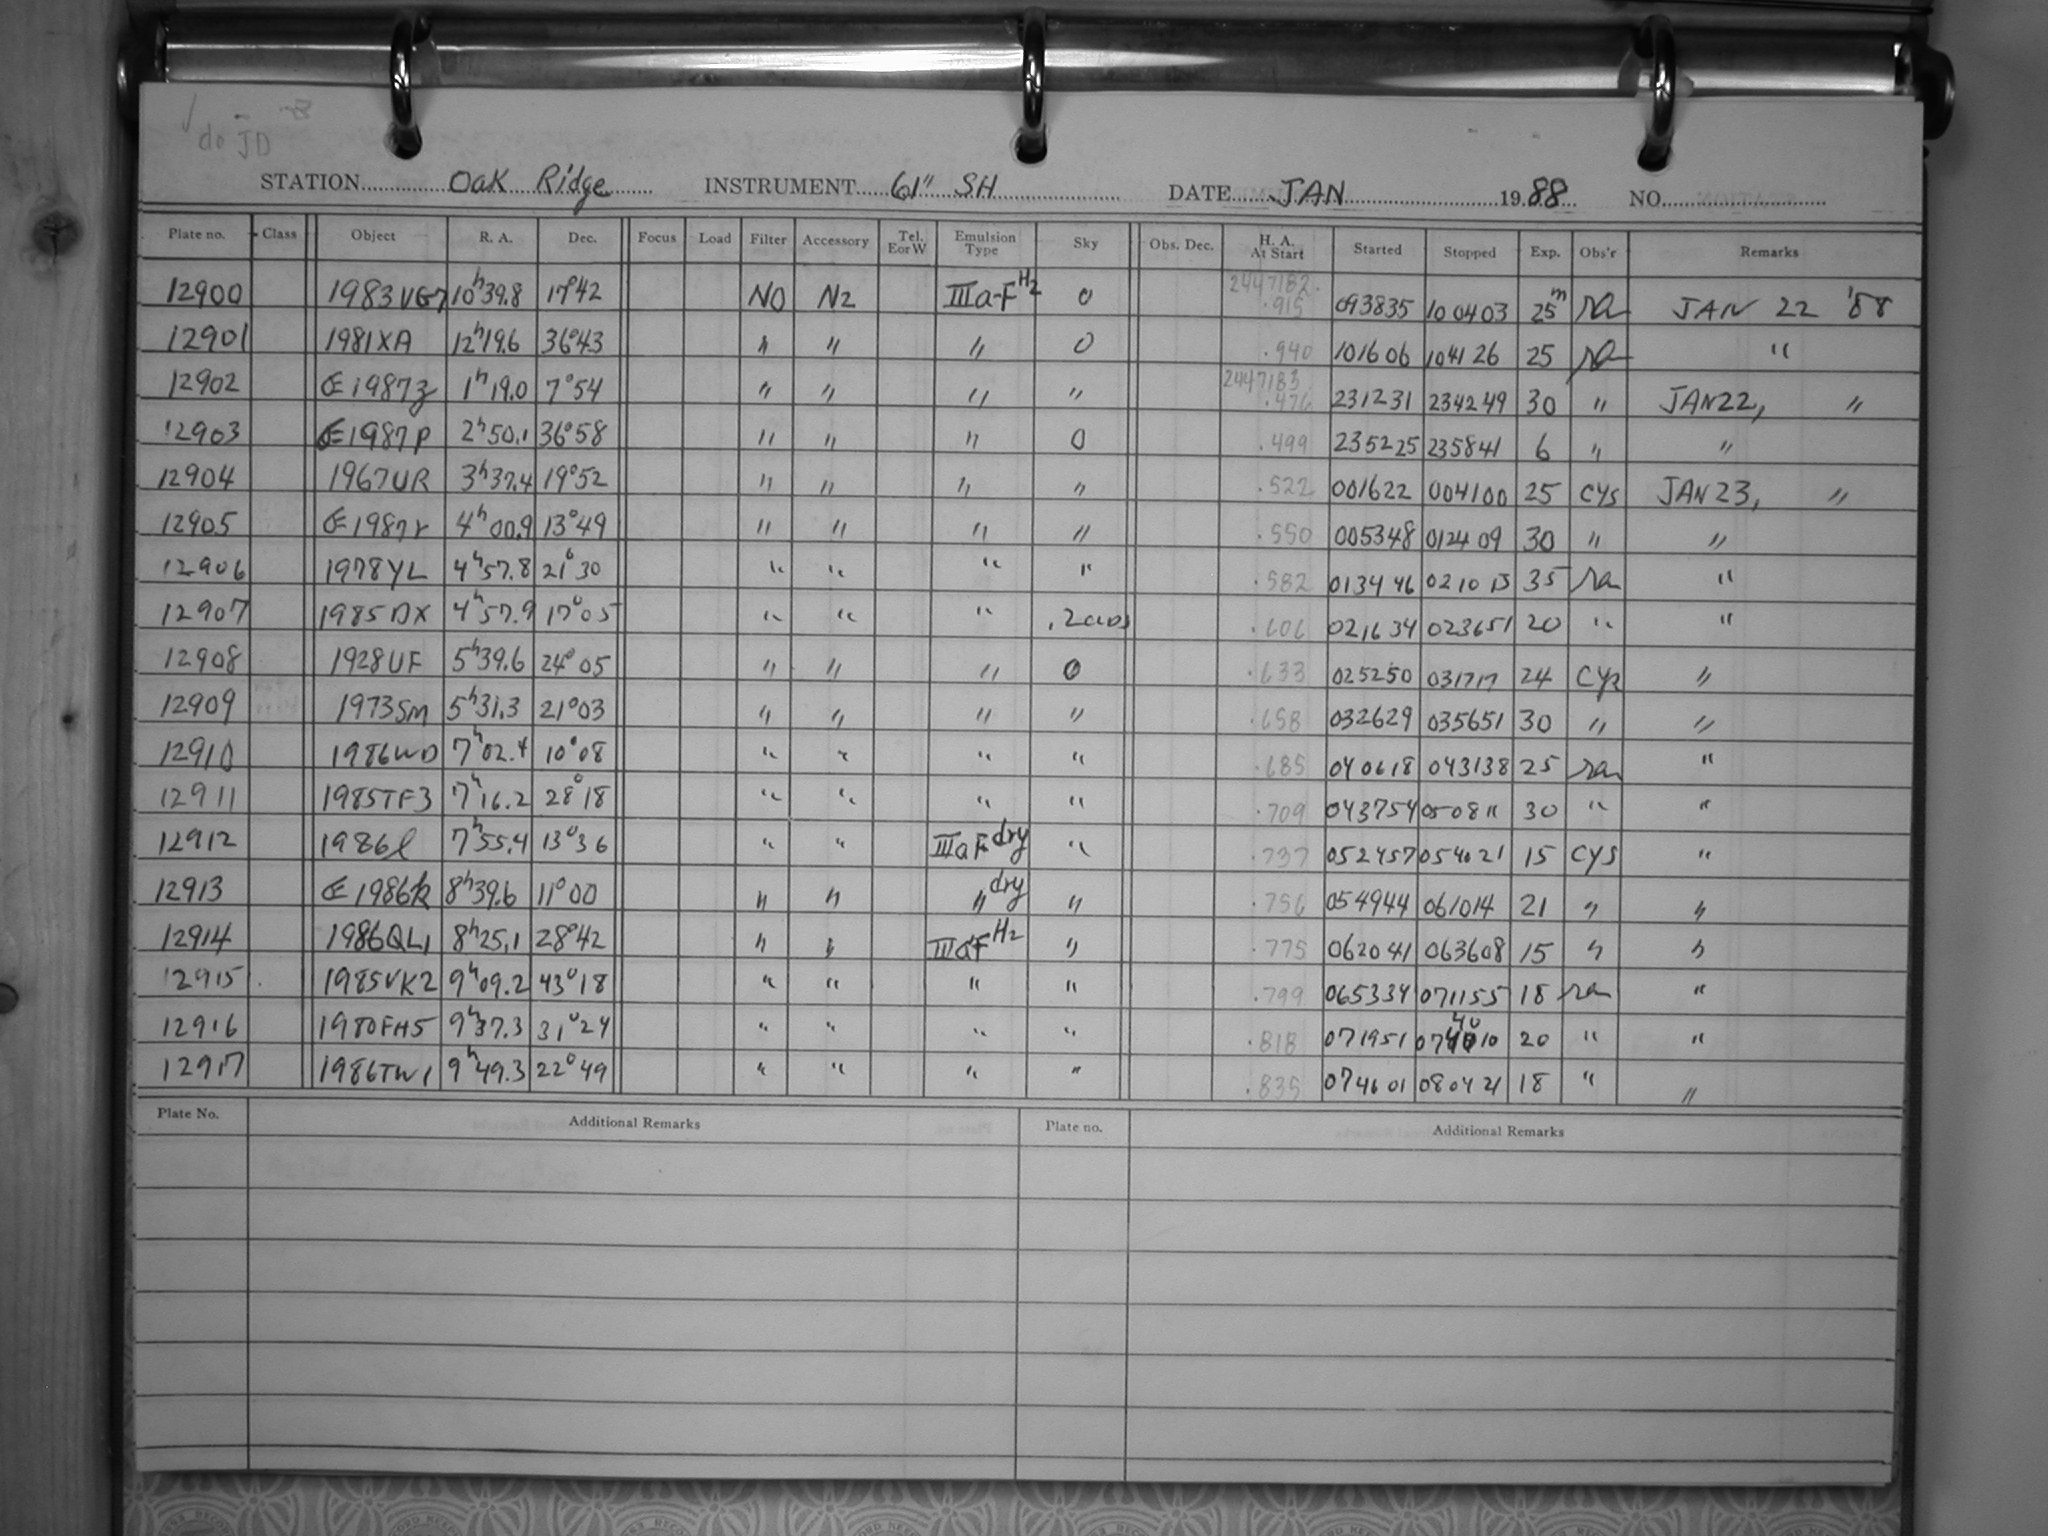 do JD
STATION Oak Ridge INSTRUMENT 61" SH DATE JAN 1988 NO.
Plate no. Class Object R. A. Dec. Focus Load Filter Accessory Tel. E or W Emulsion Type Sky Obs. Dec. H. A. At Start Started Stopped Exp. Obs'r Remarks
12900 1983VG7 10h39.8 17°42 NO N2 IIIa-F H2 0 2447182. .915 093835 100403 25m ra JAN 22 '88
12901 1981XA 12h19.6 36°43 " " " 0 .940 101606 104126 25 ra "
12902 1987z 1h19.0 7°54 " " " " 2447183 .476 231231 234249 30 " JAN22, "
12903 1987p 2h50.1 36°58 " " " 0 .499 235225 235841 6 " "
12904 1967UR 3h37.4 19°52 " " " " .522 001622 004100 25 cys JAN23, "
12905 1987r 4h00.9 13°49 " " " " .550 005348 012409 30 " "
12906 1978YL 4h57.8 21°30 " " " " .582 013446 021013 35 ra "
12907 1985DX 4h57.9 17°05 " " " .606 021634 023651 20 " "
12908 1928UF 5h39.6 24°05 " " " 0 .633 025250 031717 24 cys "
12909 1973SM 5h31.3 21°03 " " " " .658 032629 035651 30 " "
12910 1986WD 7h02.4 10°08 " " " " .685 040618 043138 25 ra "
12911 1985TF3 7h16.2 28°18 " " " " .709 043754 050811 30 " "
12912 1986l 7h55.4 13°36 " " IIIaF dry " .737 052457 054021 15 cys "
12913 1986k 8h39.6 11°00 " " " dry " .756 054944 061014 21 " "
12914 1986QL1 8h25.1 28°42 " " IIIaF H2 " .775 062041 063608 15 " "
12915 1985VK2 9h09.2 43°18 " " " " .799 065334 071155 18 ra "
12916 1980FH5 9h37.3 31°24 " " " " .818 071951 074010 40 20 " "
12917 1986TW1 9h49.3 22°49 " " " " .835 074601 080421 18 " "
Plate No. Additional Remarks Plate no. Additional Remarks